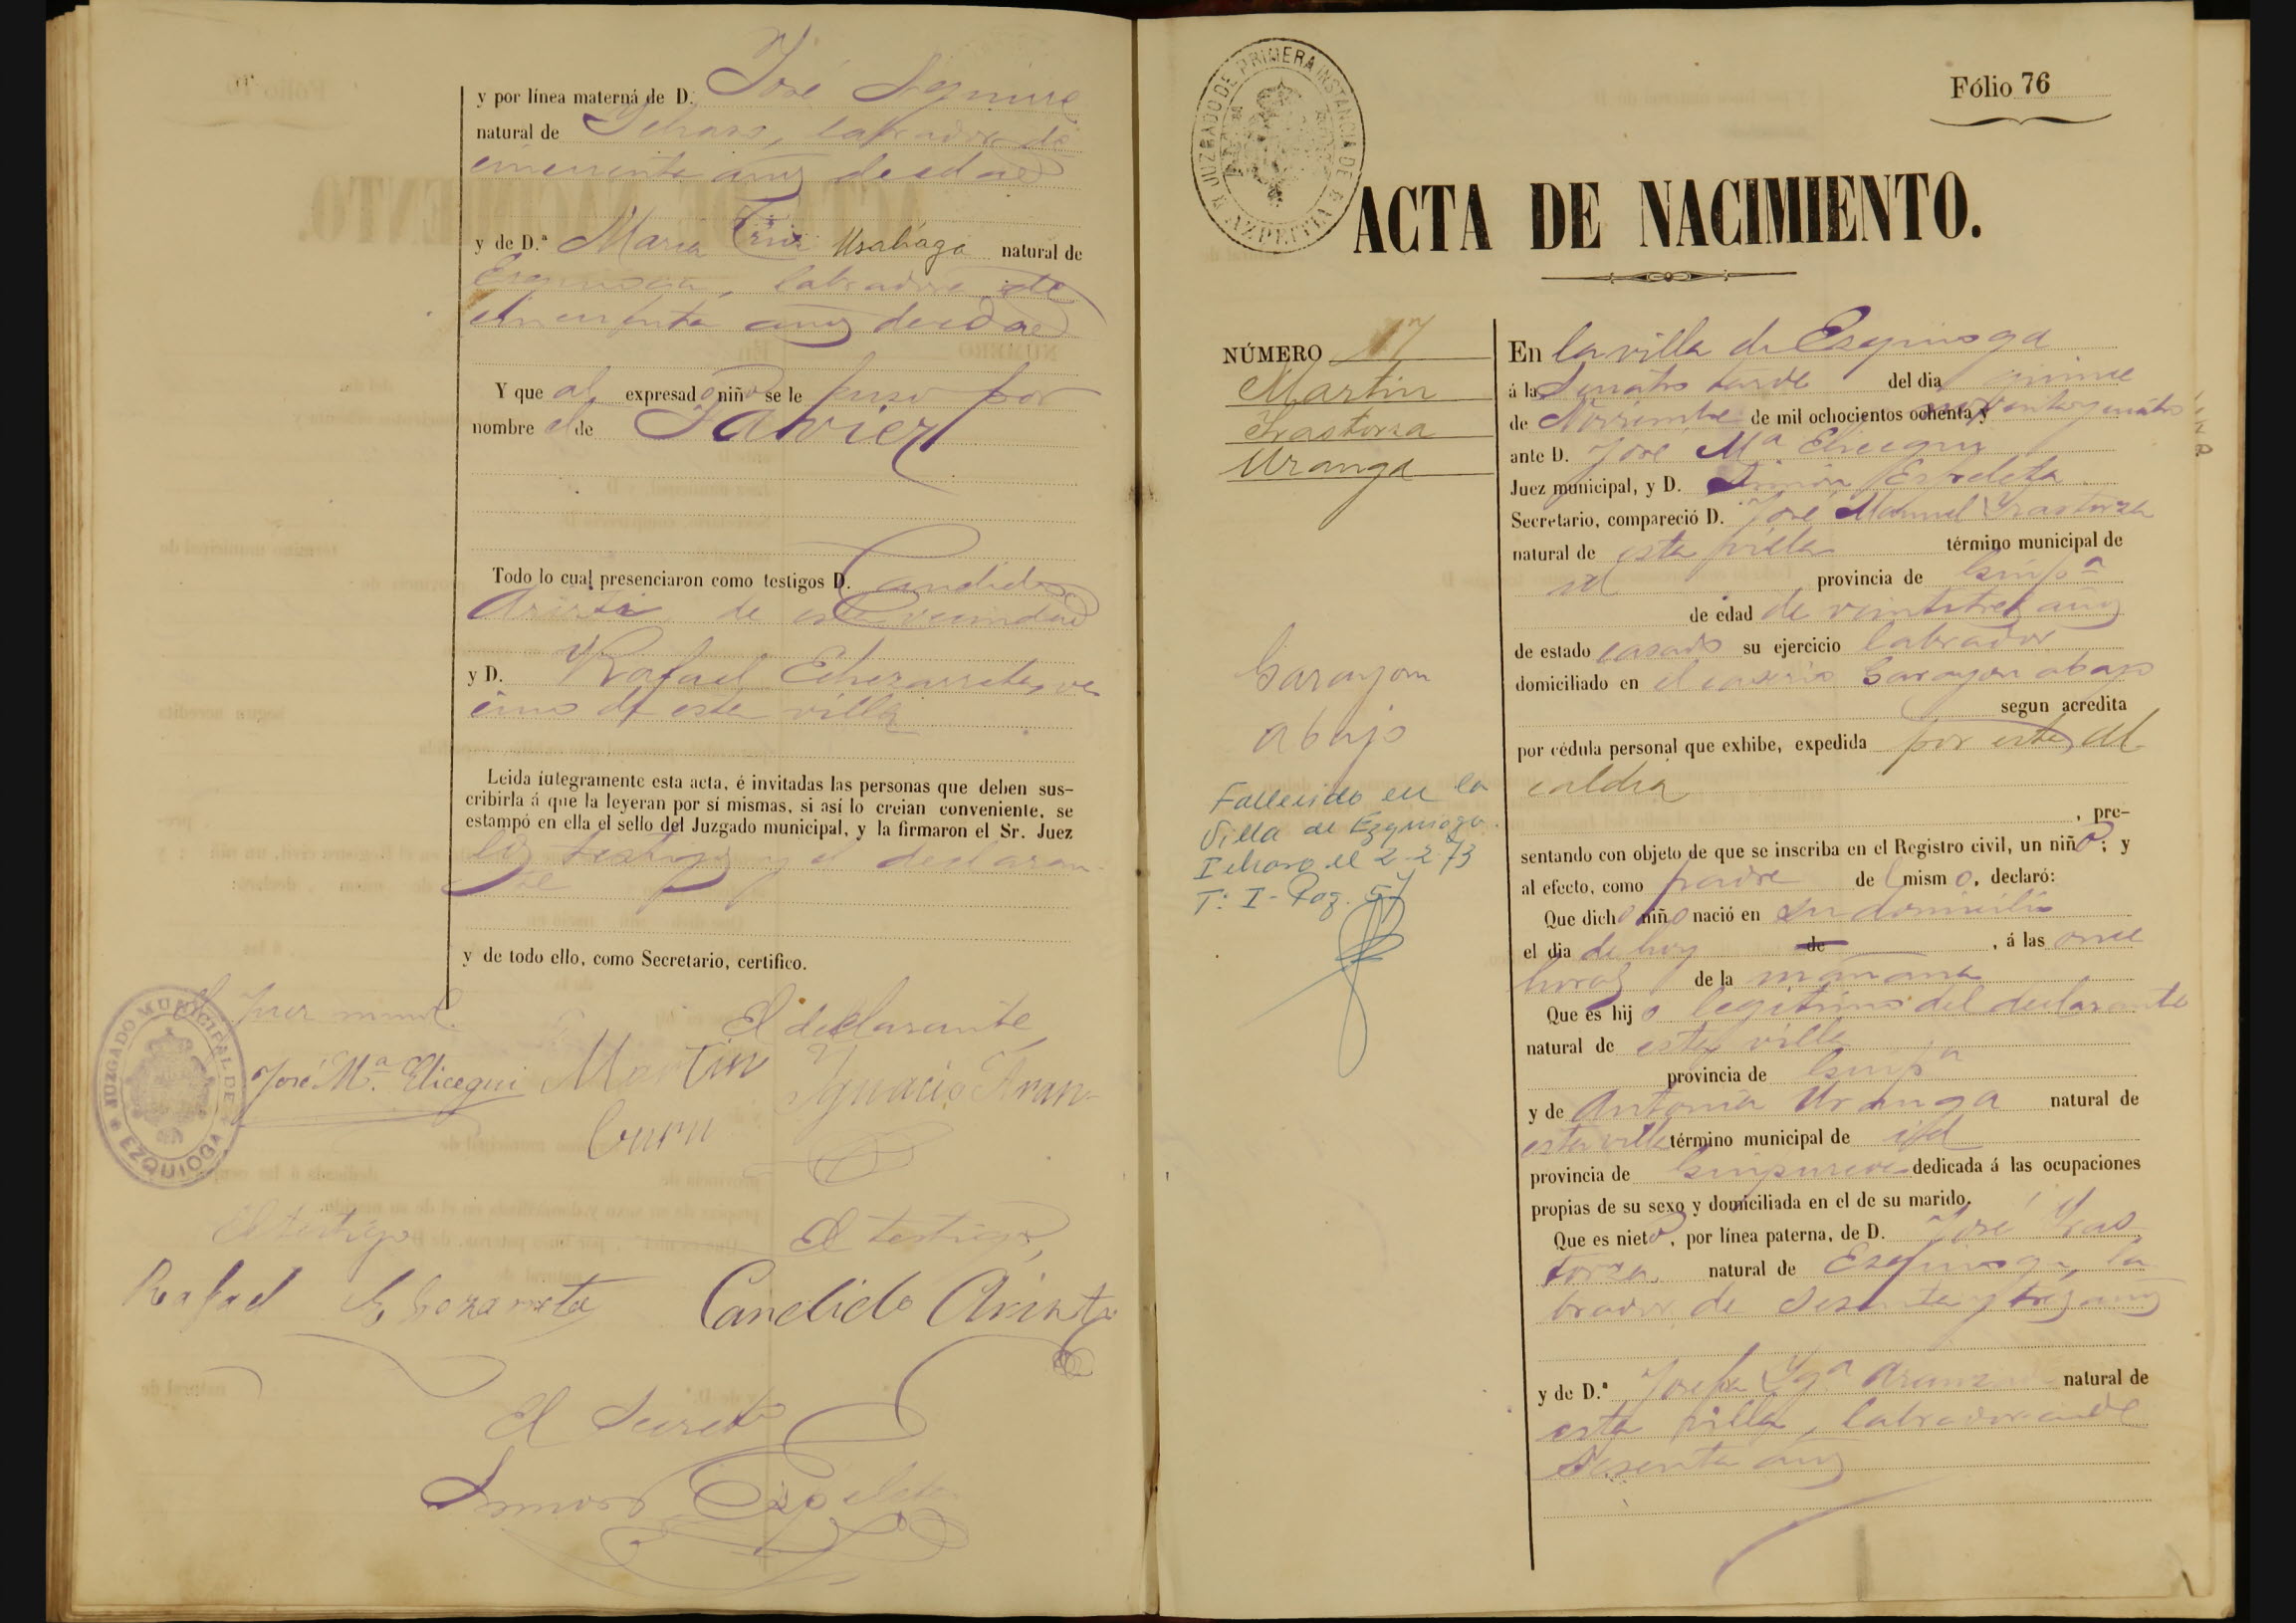 y por línea materna de D. José Aguirre
natural de Ichaso, labrador de
cincuenta años de edad
y de D.ª Maria Cruz Usabiaga natural de
Ezquioga, labradora de
cincuenta años de edad
Y que al expresado niño se le puso por
nombre el de Javier
Todo lo cual presenciaron como testigos D. Candido
de esta vecindad
y D. Rafael Echezarreta, ve
cino de esta villa
Leida íntegramente esta acta, é invitadas las personas que deben sus-
cribirla á que la leyeran por sí mismas, si así lo creian conveniente, se
estampó en ella el sello del Juzgado municipal, y la firmaron el Sr. Juez
los testigos y el declaran-
te
y de todo ello, como Secretario, certifico.
JUZGADO MUNICIPAL DE EZQUIOGA
El Juez munl.
El declarante,
José Mª. Elicegui
Martin Ignacio Aran-
buru
El testigo
El testigo,
Rafael
Candido
El Secreto
Simon Ezpeleta
JUZGADO DE PRIMERA INSTANCIA DE AZPEITIA
Fólio 76
ACTA DE NACIMIENTO.
NÚMERO 17
Martin
Irastorza
Uranga
Garayoa
abajo
Fallecido en la
Villa de Ezquioga
Ichaso el 2-2-73
T: I - Pag. 57
En la villa de Ezquioga
á las cuatro tarde del dia quince
de Noviembre de mil ochocientos ochenta y noventa y cuatro
ante D. José Mª. Elicegui
Juez municipal, y D. Simón Ezpeleta
Secretario, compareció D. José Manuel Yrastorza
natural de esta villa término municipal de
id provincia de Guipª
de edad de veintitres años
de estado casado su ejercicio labrador
domiciliado en el caserio Garayoa abajo
segun acredita
por cédula personal que exhibe, expedida por esta Al
caldia
, pre-
sentando con objeto de que se inscriba en el Registro civil, un niño; y
al efecto, como padre del mismo, declaró:
Que dicho niño nació en su domicilio
el dia de hoy de , á las once
horas de la mañana
Que es hijo legítimo del declarante
natural de esta villa
provincia de Guipª
y de Antonia Uranga natural de
esta villa término municipal de id
provincia de Guipuzcoa dedicada á las ocupaciones
propias de su sexo y domiciliada en el de su marido.
Que es nieto, por línea paterna, de D. José Yras
torza natural de Ezquioga, la
brador de sesenta y tres años
y de D.ª Josefa Ygª natural de
esta villa, labradora de
sesenta años